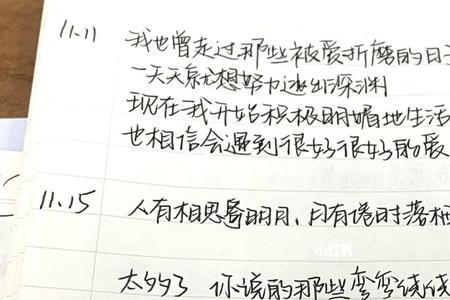 11.11 我也曾走过那些被爱折磨的日子
一天天就想努力逃出深渊
现在我开始积极明媚地生活
也相信会遇到很好很好的爱
11.15 人有相思寄明月,月有倦时落栖
小红书
太多了 你说的那些弯弯绕绕